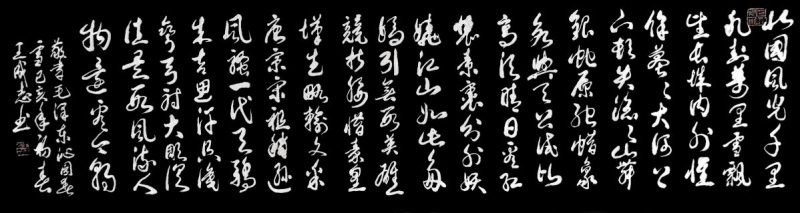 北國風光千里
冰封萬里雪飄
望長城內外惟
餘莽莽大河上
下頓失滔滔山舞
銀蛇原馳蠟象
欲與天公試比
高須晴日看紅
裝素裹分外妖
嬈江山如此多
嬌引無數英雄
競折腰惜秦皇
漢武略輸文采
唐宗宋祖稍遜
風騷一代天驕
成吉思汗只識
彎弓射大雕俱
往矣數風流人
物還看今朝
敬書毛澤東沁園春
雪己亥年初春
王成志書